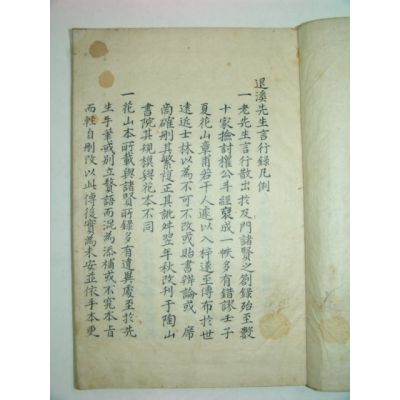 退溪先生言行錄凡例
一老先生言行散出於及門諸賢之劄錄殆至數
十家撿討權公斗經裒成一帙多有錯謬壬子
夏花山章甫若干人遽以入梓遂至傳布於世
遠近士林以爲不可不改或貽書辨論或 席
商確刪其繁複正其訛舛翌年秋改刊于陶山
書院其規模與花本不同
一花山本所載與諸賢所錄多有違異處至於先
生手筆或別立贅語而混爲添補或不究本旨
而輕自刪改以此傳後實爲未安並依手本更